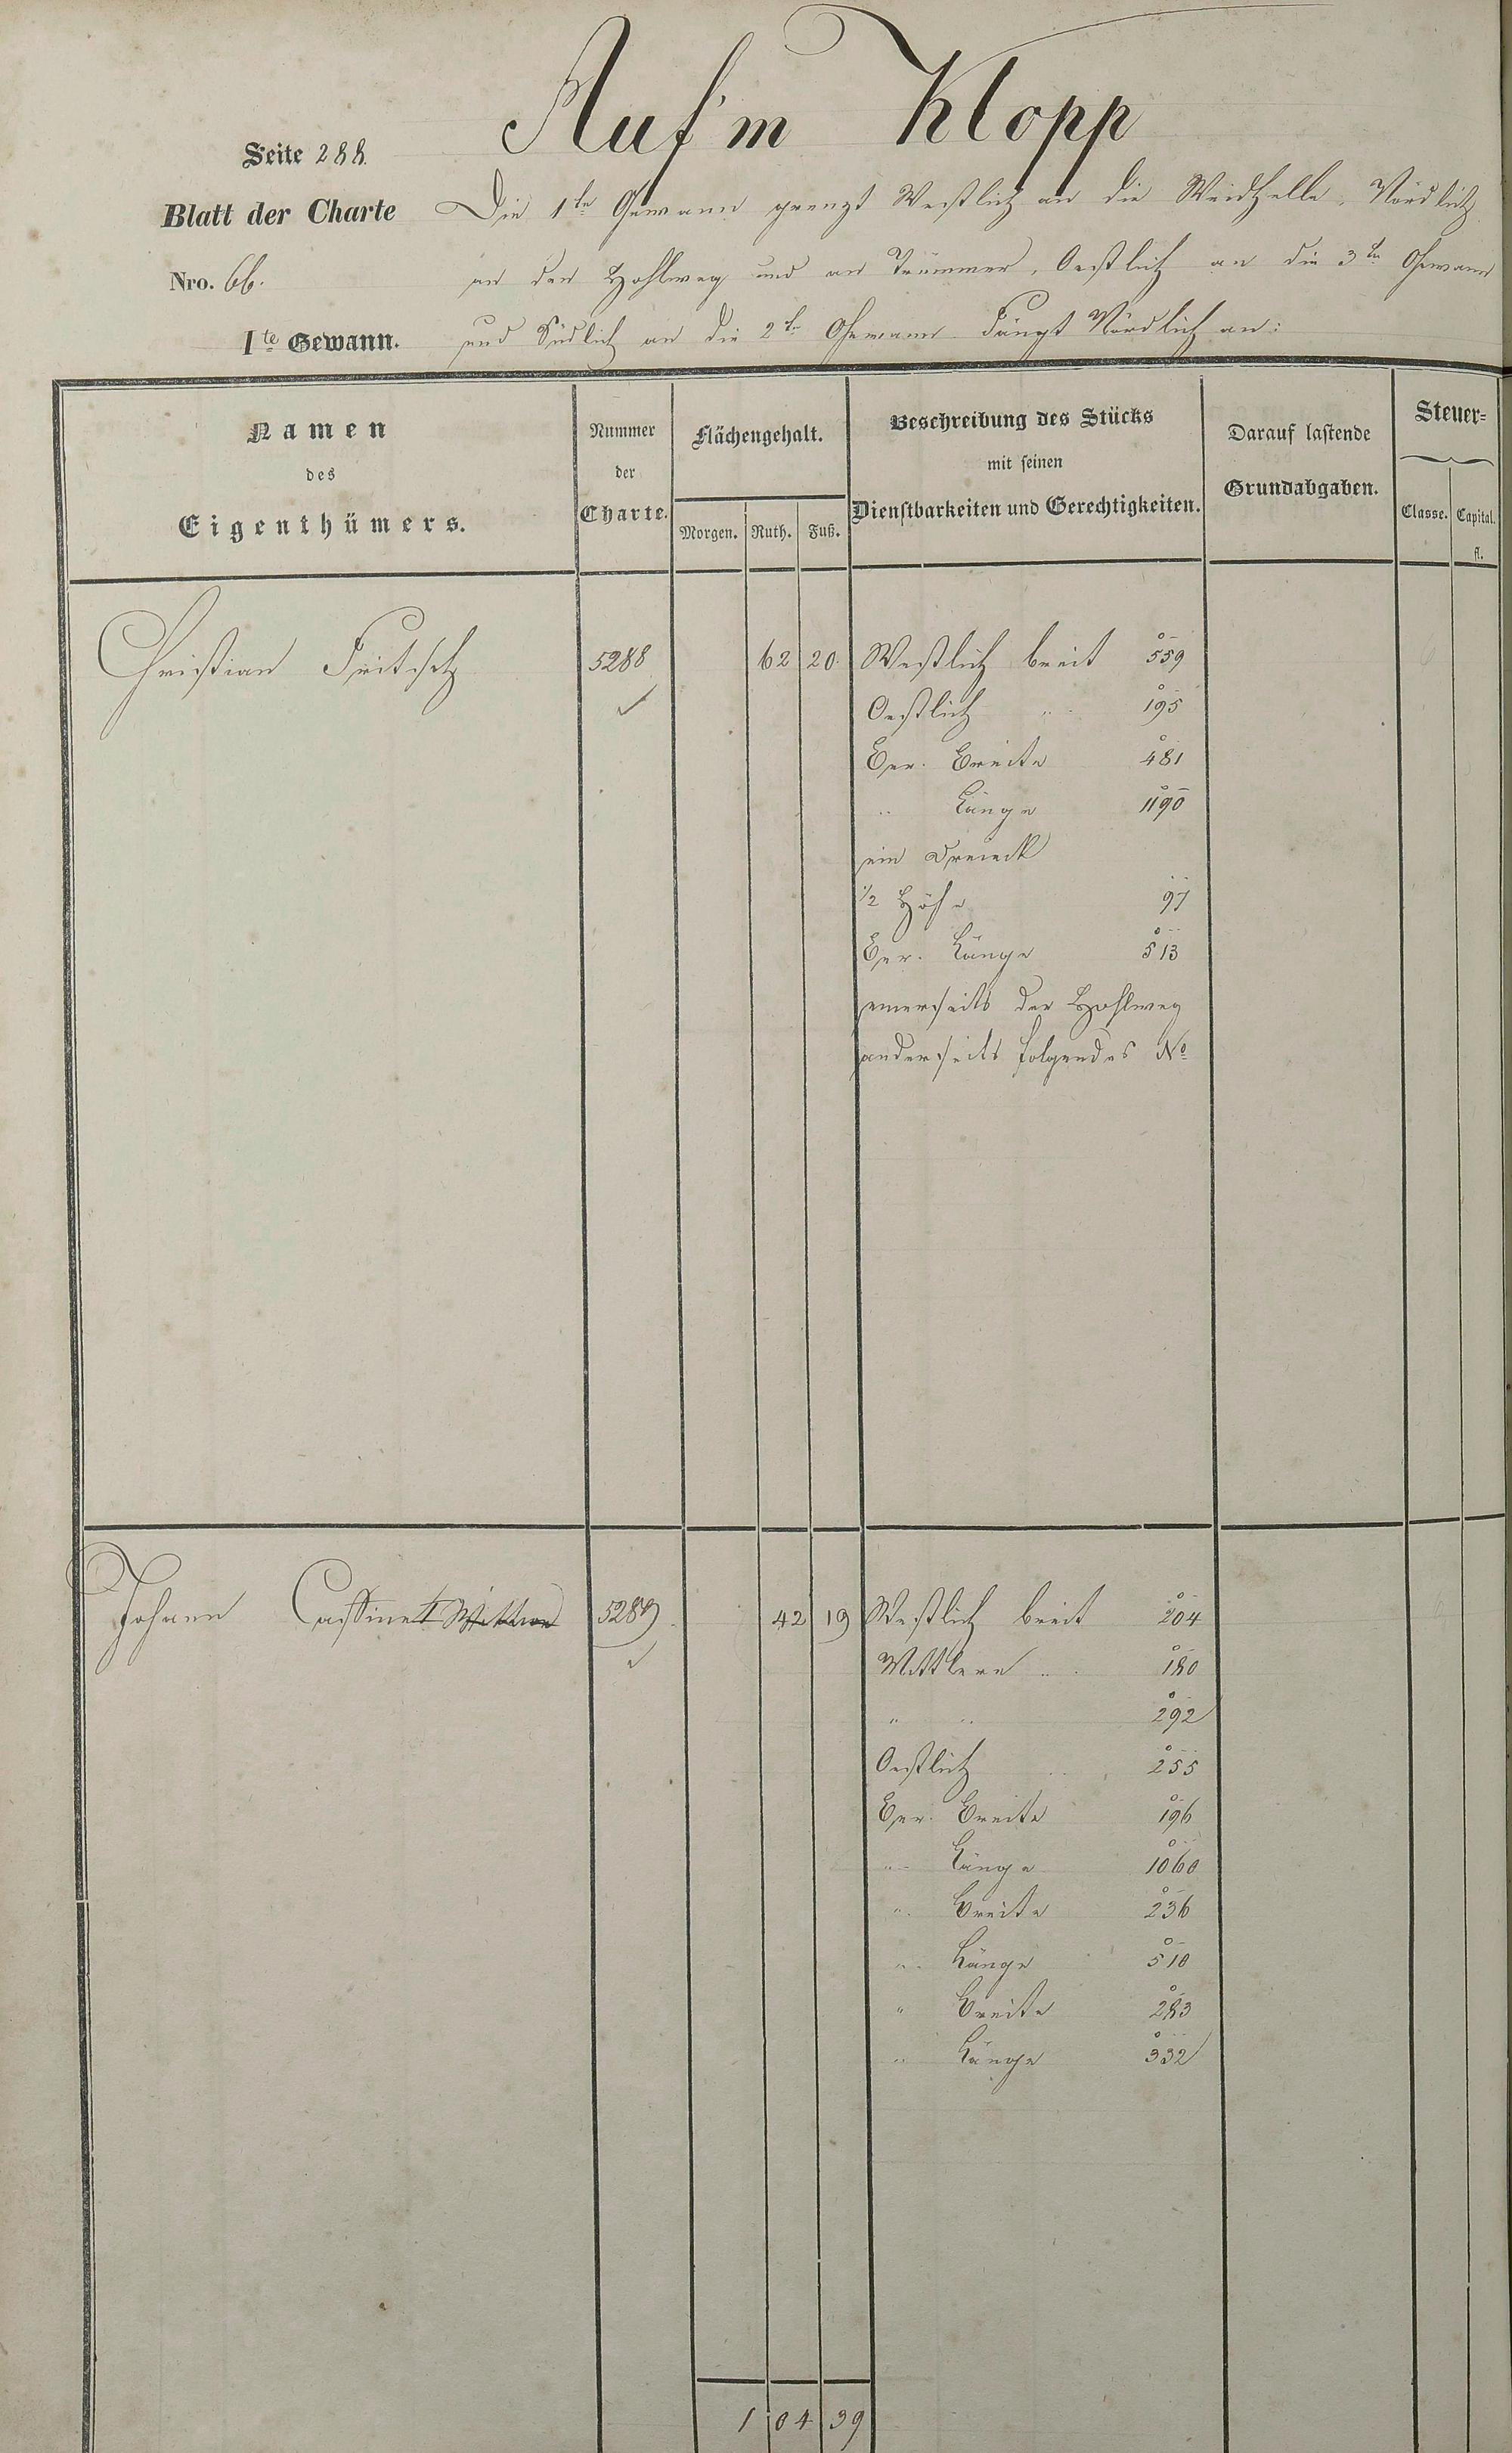 Auf'm Klopp
Seite 288.
Blatt der Charte
Nro. 66.
1te Gewann.
Die 1te Gewann grenzt Westlich an die Weidhelle, Nördlich
an den Hohlweg und an Trümmer, Oestlich an die 3te Gewann
und Südlich an die 2te Gewann. Fängt Nördlich an:
Namen
des
Eigenthümers.
Nummer
der
Charte.
Flächengehalt.
Morgen. Ruth. Fuß.
Beschreibung des Stücks
mit seinen
Dienstbarkeiten und Gerechtigkeiten.
Darauf lastende
Grundabgaben.
Steuer=
Classe. Capital.
fl.
Christian Fritsch 5288 62 20 Westlich breit 559
Oestlich " 195
Ber. Breite 481
" Länge 1190
ein Dreieck
1/2 Höhe 97
Ber. Länge 513
einerseits der Hohlweg
anderseits folgendes No
Johann Cassinet Wittwe 5289 42 19 Westlich breit 204
Mittlere " 180
" " 292
Oestlich 255
Ber. Breite 196
" Länge 1060
" Breite 236
" Länge 510
" Breite 283
" Länge 332
1 04 39